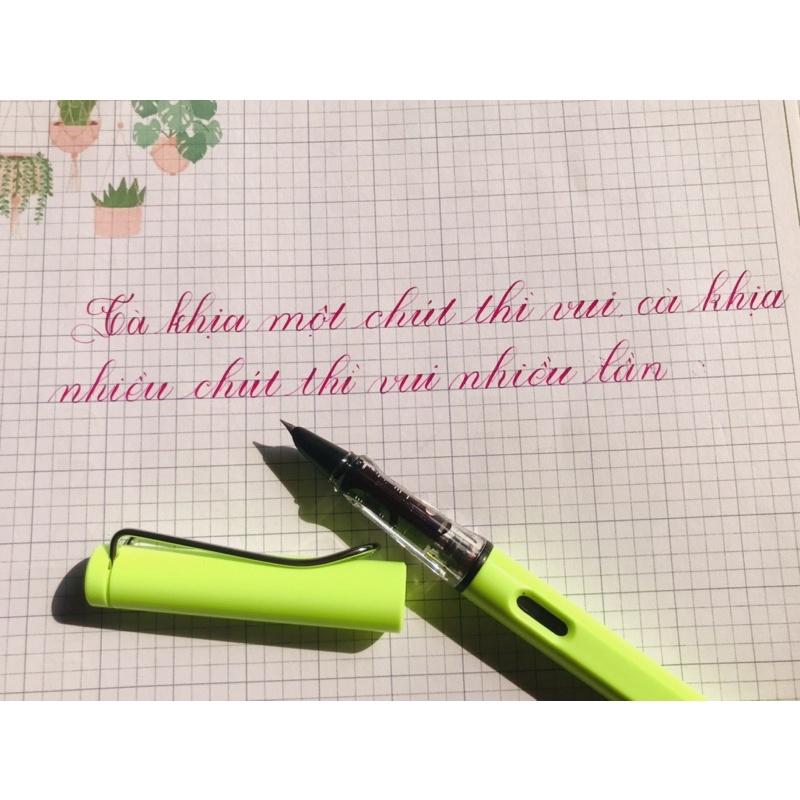 Cà khịa một chút thì vui. cà khịa
nhiều chút thì vui nhiều lần